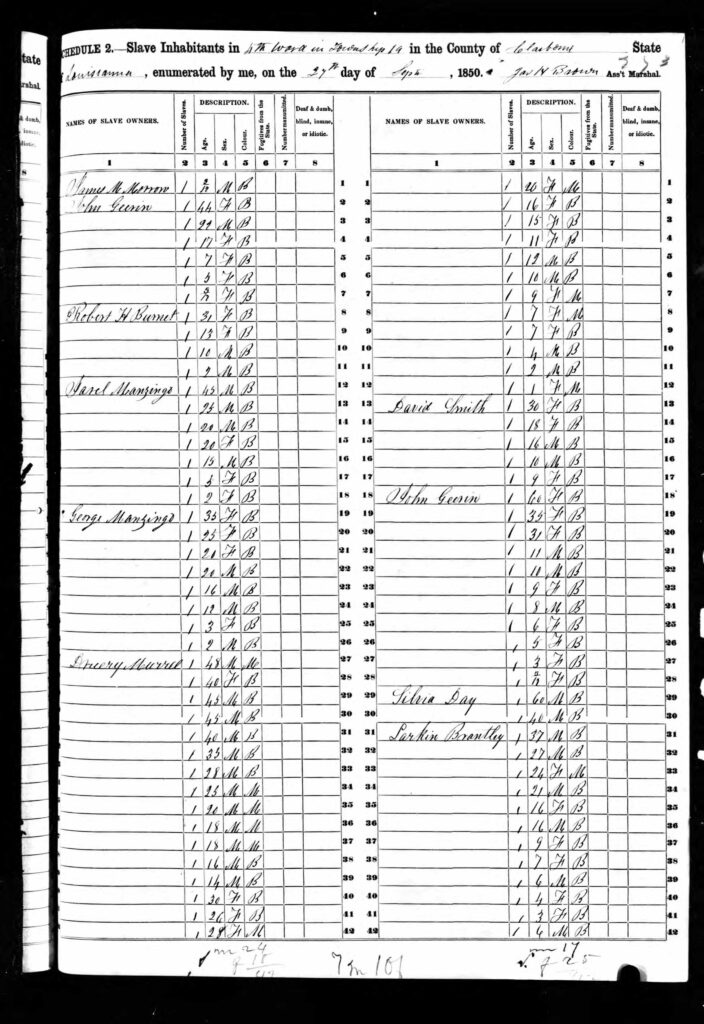 SCHEDULE 2.—Slave Inhabitants in 4th Ward in Township 19 in the County of Claiborne State
Louisianna, enumerated by me, on the 27th day of Sept, 1850. Jas H Brown Ass't Marshal.
NAMES OF SLAVE OWNERS. Number of Slaves. DESCRIPTION. Age. Sex. Colour. Fugitives from the State. Number manumitted. Deaf & dumb, blind, insane, or idiotic.
1 2 3 4 5 6 7 8
James M Morrow 1 M B 1
John Geerin 1 44 F B 2
1 22 M B 3
1 17 F B 4
1 7 F B 5
1 3 F B 6
1 F B 7
Robert H Burnet 1 31 F B 8
1 13 F B 9
1 10 M B 10
1 2 M B 11
Manzingo 1 45 M B 12
1 25 M B 13
1 20 M B 14
1 20 F B 15
1 15 M B 16
1 3 F B 17
1 2 F B 18
George Manzingo 1 35 F B 19
1 25 F B 20
1 20 F B 21
1 20 M B 22
1 16 M B 23
1 12 M B 24
1 3 F B 25
1 2 M B 26
Murrel 1 48 M M 27
1 40 F B 28
1 45 M B 29
1 45 M B 30
1 40 M B 31
1 35 M B 32
1 28 M B 33
1 25 M M 34
1 20 M M 35
1 18 M M 36
1 18 M M 37
1 16 M B 38
1 14 M B 39
1 30 F B 40
1 26 F B 41
1 28 F M 42
m 24
f 18
42
NAMES OF SLAVE OWNERS. Number of Slaves. DESCRIPTION. Age. Sex. Colour. Fugitives from the State. Number manumitted. Deaf & dumb, blind, insane, or idiotic.
1 2 3 4 5 6 7 8
1 1 20 F M 1
2 1 16 F B 2
3 1 15 F B 3
4 1 11 F B 4
5 1 12 M B 5
6 1 10 M B 6
7 1 9 F M 7
8 1 7 F M 8
9 1 7 F B 9
10 1 4 M B 10
11 1 2 M B 11
12 1 1 F M 12
13 David Smith 1 30 F B 13
14 1 18 F B 14
15 1 16 M B 15
16 1 10 M B 16
17 1 9 F B 17
18 John Geerin 1 60 F B 18
19 1 35 F B 19
20 1 31 F B 20
21 1 11 M B 21
22 1 10 M B 22
23 1 9 F B 23
24 1 8 M B 24
25 1 6 F B 25
26 1 5 F B 26
27 1 3 F B 27
28 1 F B 28
29 Silvia Day 1 60 M B 29
30 1 40 M B 30
31 Larkin Brantley 1 37 M B 31
32 1 27 M B 32
33 1 24 F M 33
34 1 21 M B 34
35 1 16 F B 35
36 1 16 M B 36
37 1 9 F B 37
38 1 7 F B 38
39 1 6 M B 39
40 1 4 F B 40
41 1 3 F B 41
42 1 6 M B 42
m 17
f 25